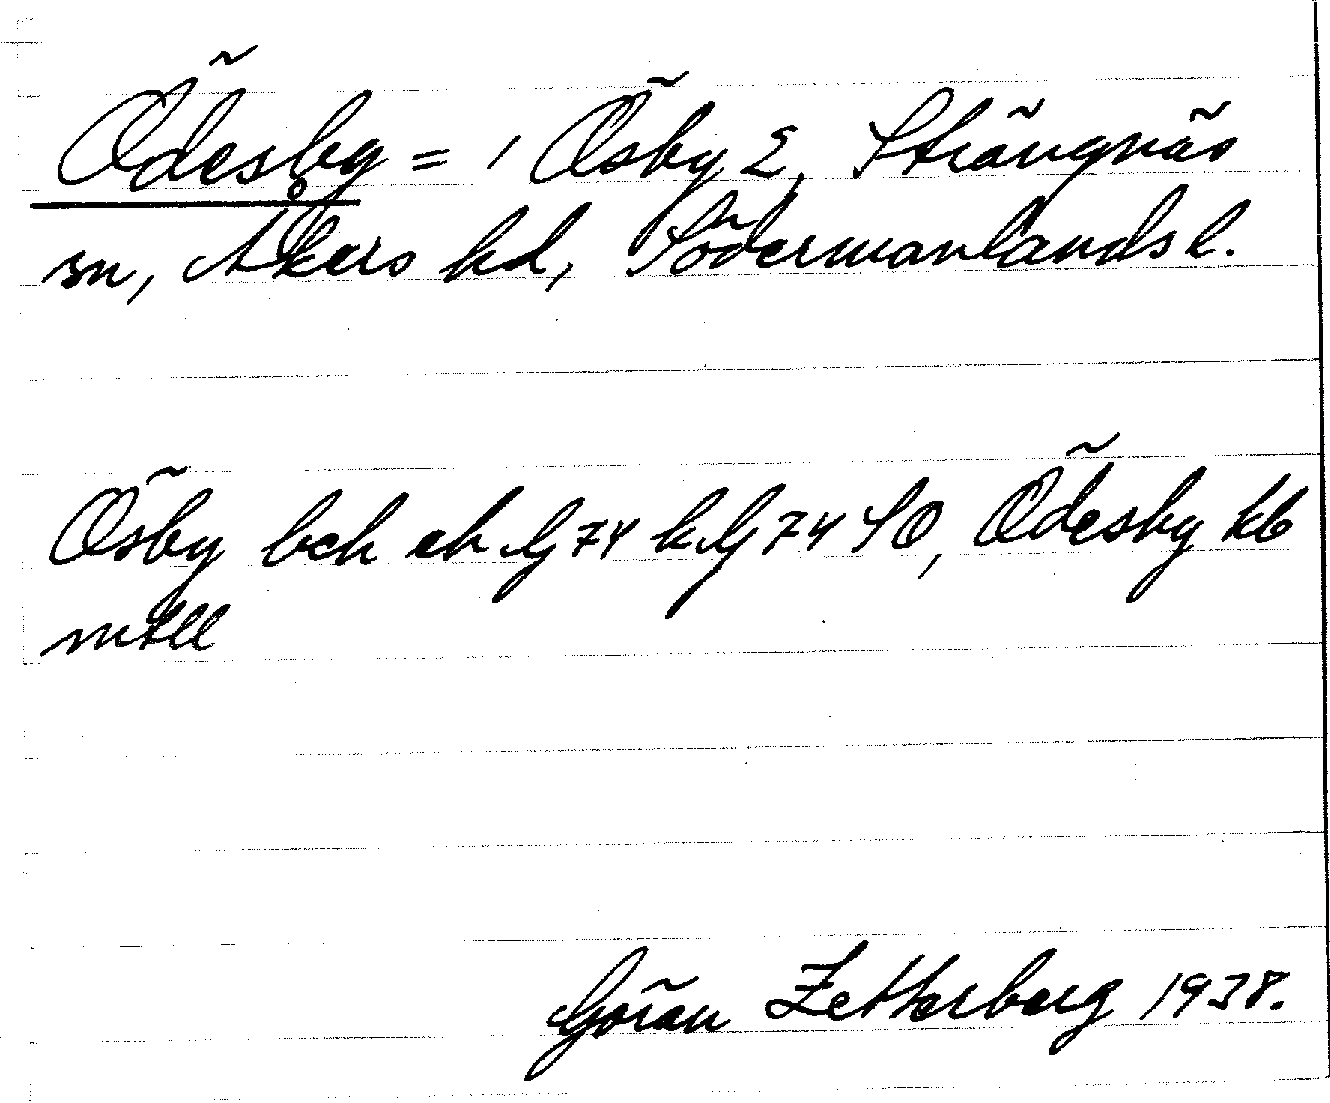 Ödesby = 1 Ösby 2, Strängnäs
sn, Åkers hd, Södermanlands l.
Ösby bch eh G 74 k G 74 SO, Ödesby kb
mtll
Göran Zetterberg 1938.